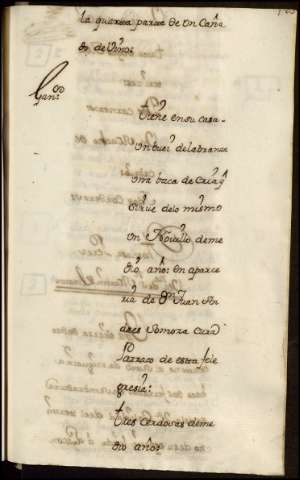 la quarta parte de un Caña
do de vino:
Gan.do
tiene en su casa
un buei de labranza
una baca de Cria q.e
sirve de lo mismo
un Novillo de me
dio año: en aparce
ria de D.n Juan An
dres Somoza Cura
Parraco de esta fele
gresia:
tres cerdos de me
dio año: